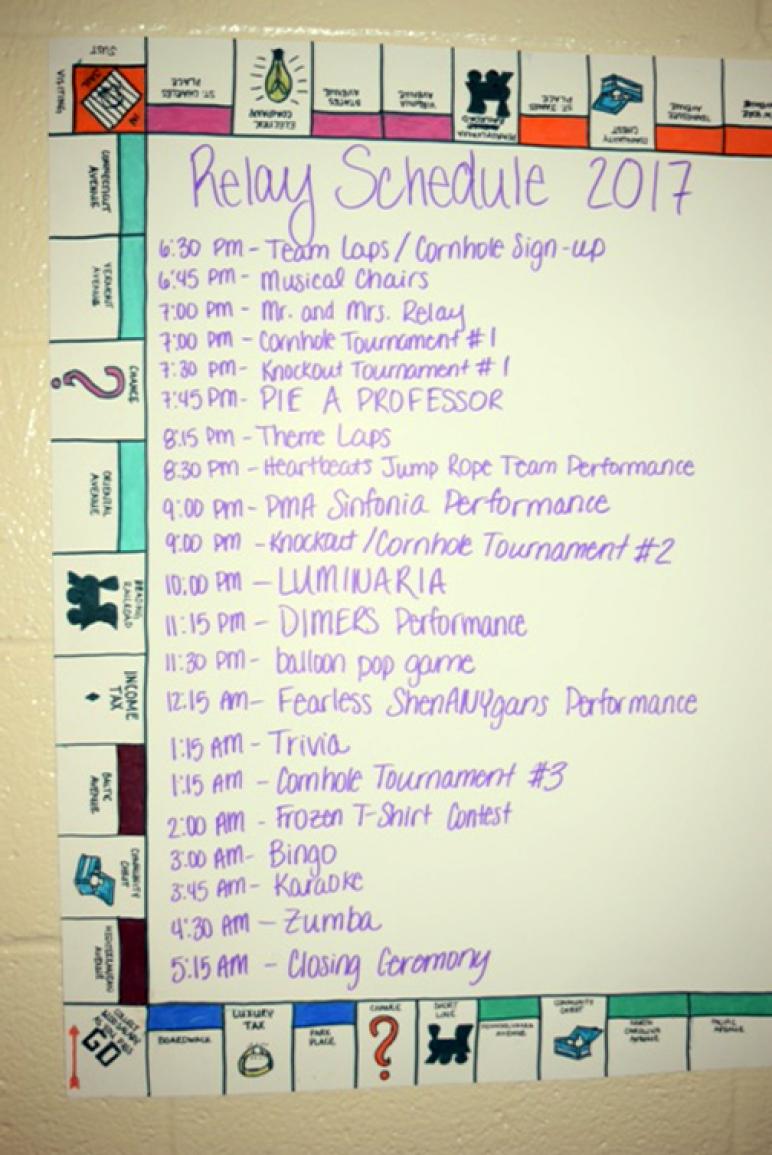 JUST
VISITING
IN
JAIL
ST. CHARLES
PLACE
ELECTRIC
COMPANY
STATES
AVENUE
VIRGINIA
AVENUE
PENNSYLVANIA
RAILROAD
ST. JAMES
PLACE
COMMUNITY
CHEST
TENNESSEE
AVENUE
Relay Schedule 2017
6:30 PM - Team Laps / Cornhole Sign-up
6:45 PM - Musical Chairs
7:00 PM - Mr. and Mrs. Relay
7:00 PM - Cornhole Tournament #1
7:30 PM - Knockout Tournament #1
7:45 PM - PIE A PROFESSOR
8:15 PM - Theme Laps
8:30 PM - Heartbeats Jump Rope Team Performance
9:00 PM - PMA Sinfonia Performance
9:00 PM - Knockout / Cornhole Tournament #2
10:00 PM - LUMINARIA
11:15 PM - DIMERS Performance
11:30 PM - balloon pop game
12:15 AM - Fearless ShenANYgans Performance
1:15 AM - Trivia
1:15 AM - Cornhole Tournament #3
2:00 AM - Frozen T-Shirt Contest
3:00 AM - Bingo
3:45 AM - Karaoke
4:30 AM - Zumba
5:15 AM - Closing Ceremony
CONNECTICUT
AVENUE
VERMONT
AVENUE
CHANCE
?
ORIENTAL
AVENUE
READING
RAILROAD
INCOME
TAX
BALTIC
AVENUE
COMMUNITY
CHEST
MEDITERRANEAN
AVENUE
GO
BOARDWALK
LUXURY
TAX
PARK
PLACE
CHANCE
?
SHORT
LINE
PENNSYLVANIA
AVENUE
COMMUNITY
CHEST
NORTH
CAROLINA
AVENUE
PACIFIC
AVENUE